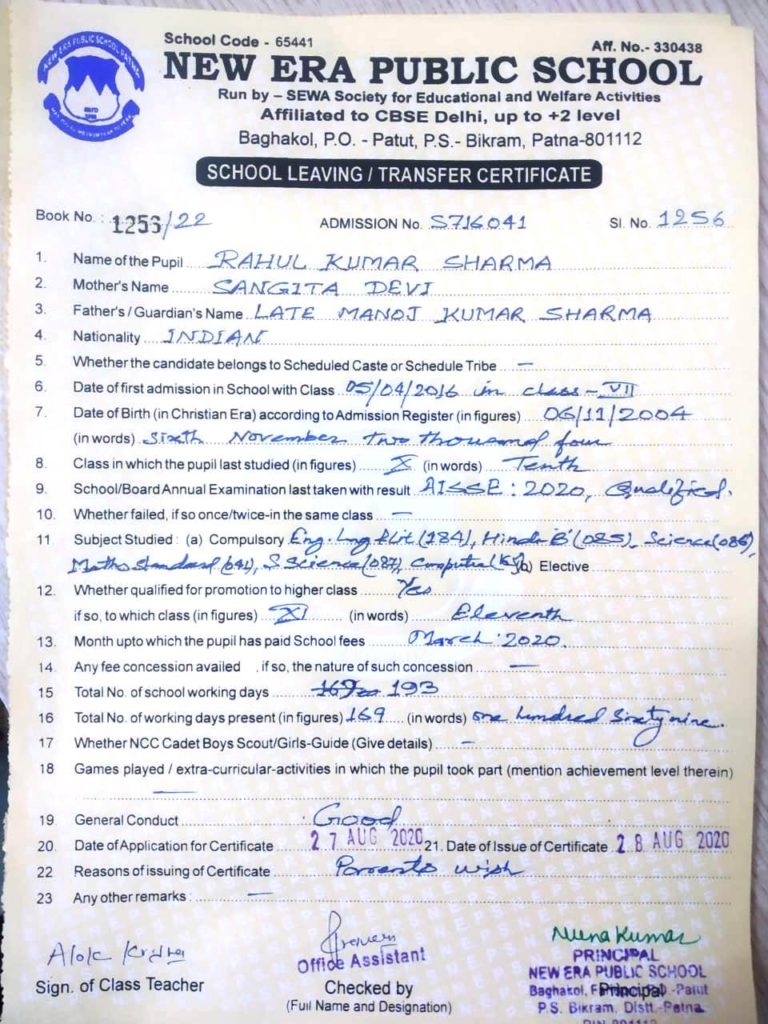 School Code - 65441
Aff. No.- 330438
NEW ERA PUBLIC SCHOOL
Run by – SEWA Society for Educational and Welfare Activities
Affiliated to CBSE Delhi, up to +2 level
Baghakol, P.O. - Patut, P.S.- Bikram, Patna-801112
SCHOOL LEAVING / TRANSFER CERTIFICATE
Book No. : 1256/22 ADMISSION No. S716041 Sl. No. 1256
1. Name of the Pupil RAHUL KUMAR SHARMA
2. Mother's Name SANGITA DEVI
3. Father's / Guardian's Name LATE MANOJ KUMAR SHARMA
4. Nationality INDIAN
5. Whether the candidate belongs to Scheduled Caste or Schedule Tribe —
6. Date of first admission in School with Class 05/04/2016 in class - VII
7. Date of Birth (in Christian Era) according to Admission Register (in figures) 06/11/2004
(in words) Sixth November two thousand four
8. Class in which the pupil last studied (in figures) X (in words) Tenth
9. School/Board Annual Examination last taken with result AISSE : 2020, Qualified.
10. Whether failed, if so once/twice-in the same class —
11 Subject Studied : (a) Compulsory Eng. Lng & Lit (184), Hindi 'B' (085), Science (086),
Maths Standard (041), S. Science (087), (b) Elective
12. Whether qualified for promotion to higher class Yes
if so, to which class (in figures) XI (in words) Eleventh
13. Month upto which the pupil has paid School fees March '2020.
14. Any fee concession availed , if so, the nature of such concession —
15 Total No. of school working days 193
16 Total No. of working days present (in figures) 169 (in words) one hundred sixty nine.
17 Whether NCC Cadet Boys Scout/Girls-Guide (Give details) —
18 Games played / extra-curricular-activities in which the pupil took part (mention achievement level therein)
—
19 General Conduct Good
20. Date of Application for Certificate 27 AUG 2020 21. Date of Issue of Certificate 28 AUG 2020
22 Reasons of issuing of Certificate Parents wish
23 Any other remarks : —
Alok
Neena Kumar
Office Assistant
PRINCIPAL
NEW ERA PUBLIC SCHOOL
Sign. of Class Teacher Checked by Principal
Baghakol, -Patut
(Full Name and Designation)
P.S. Bikram, Distt.-Patna